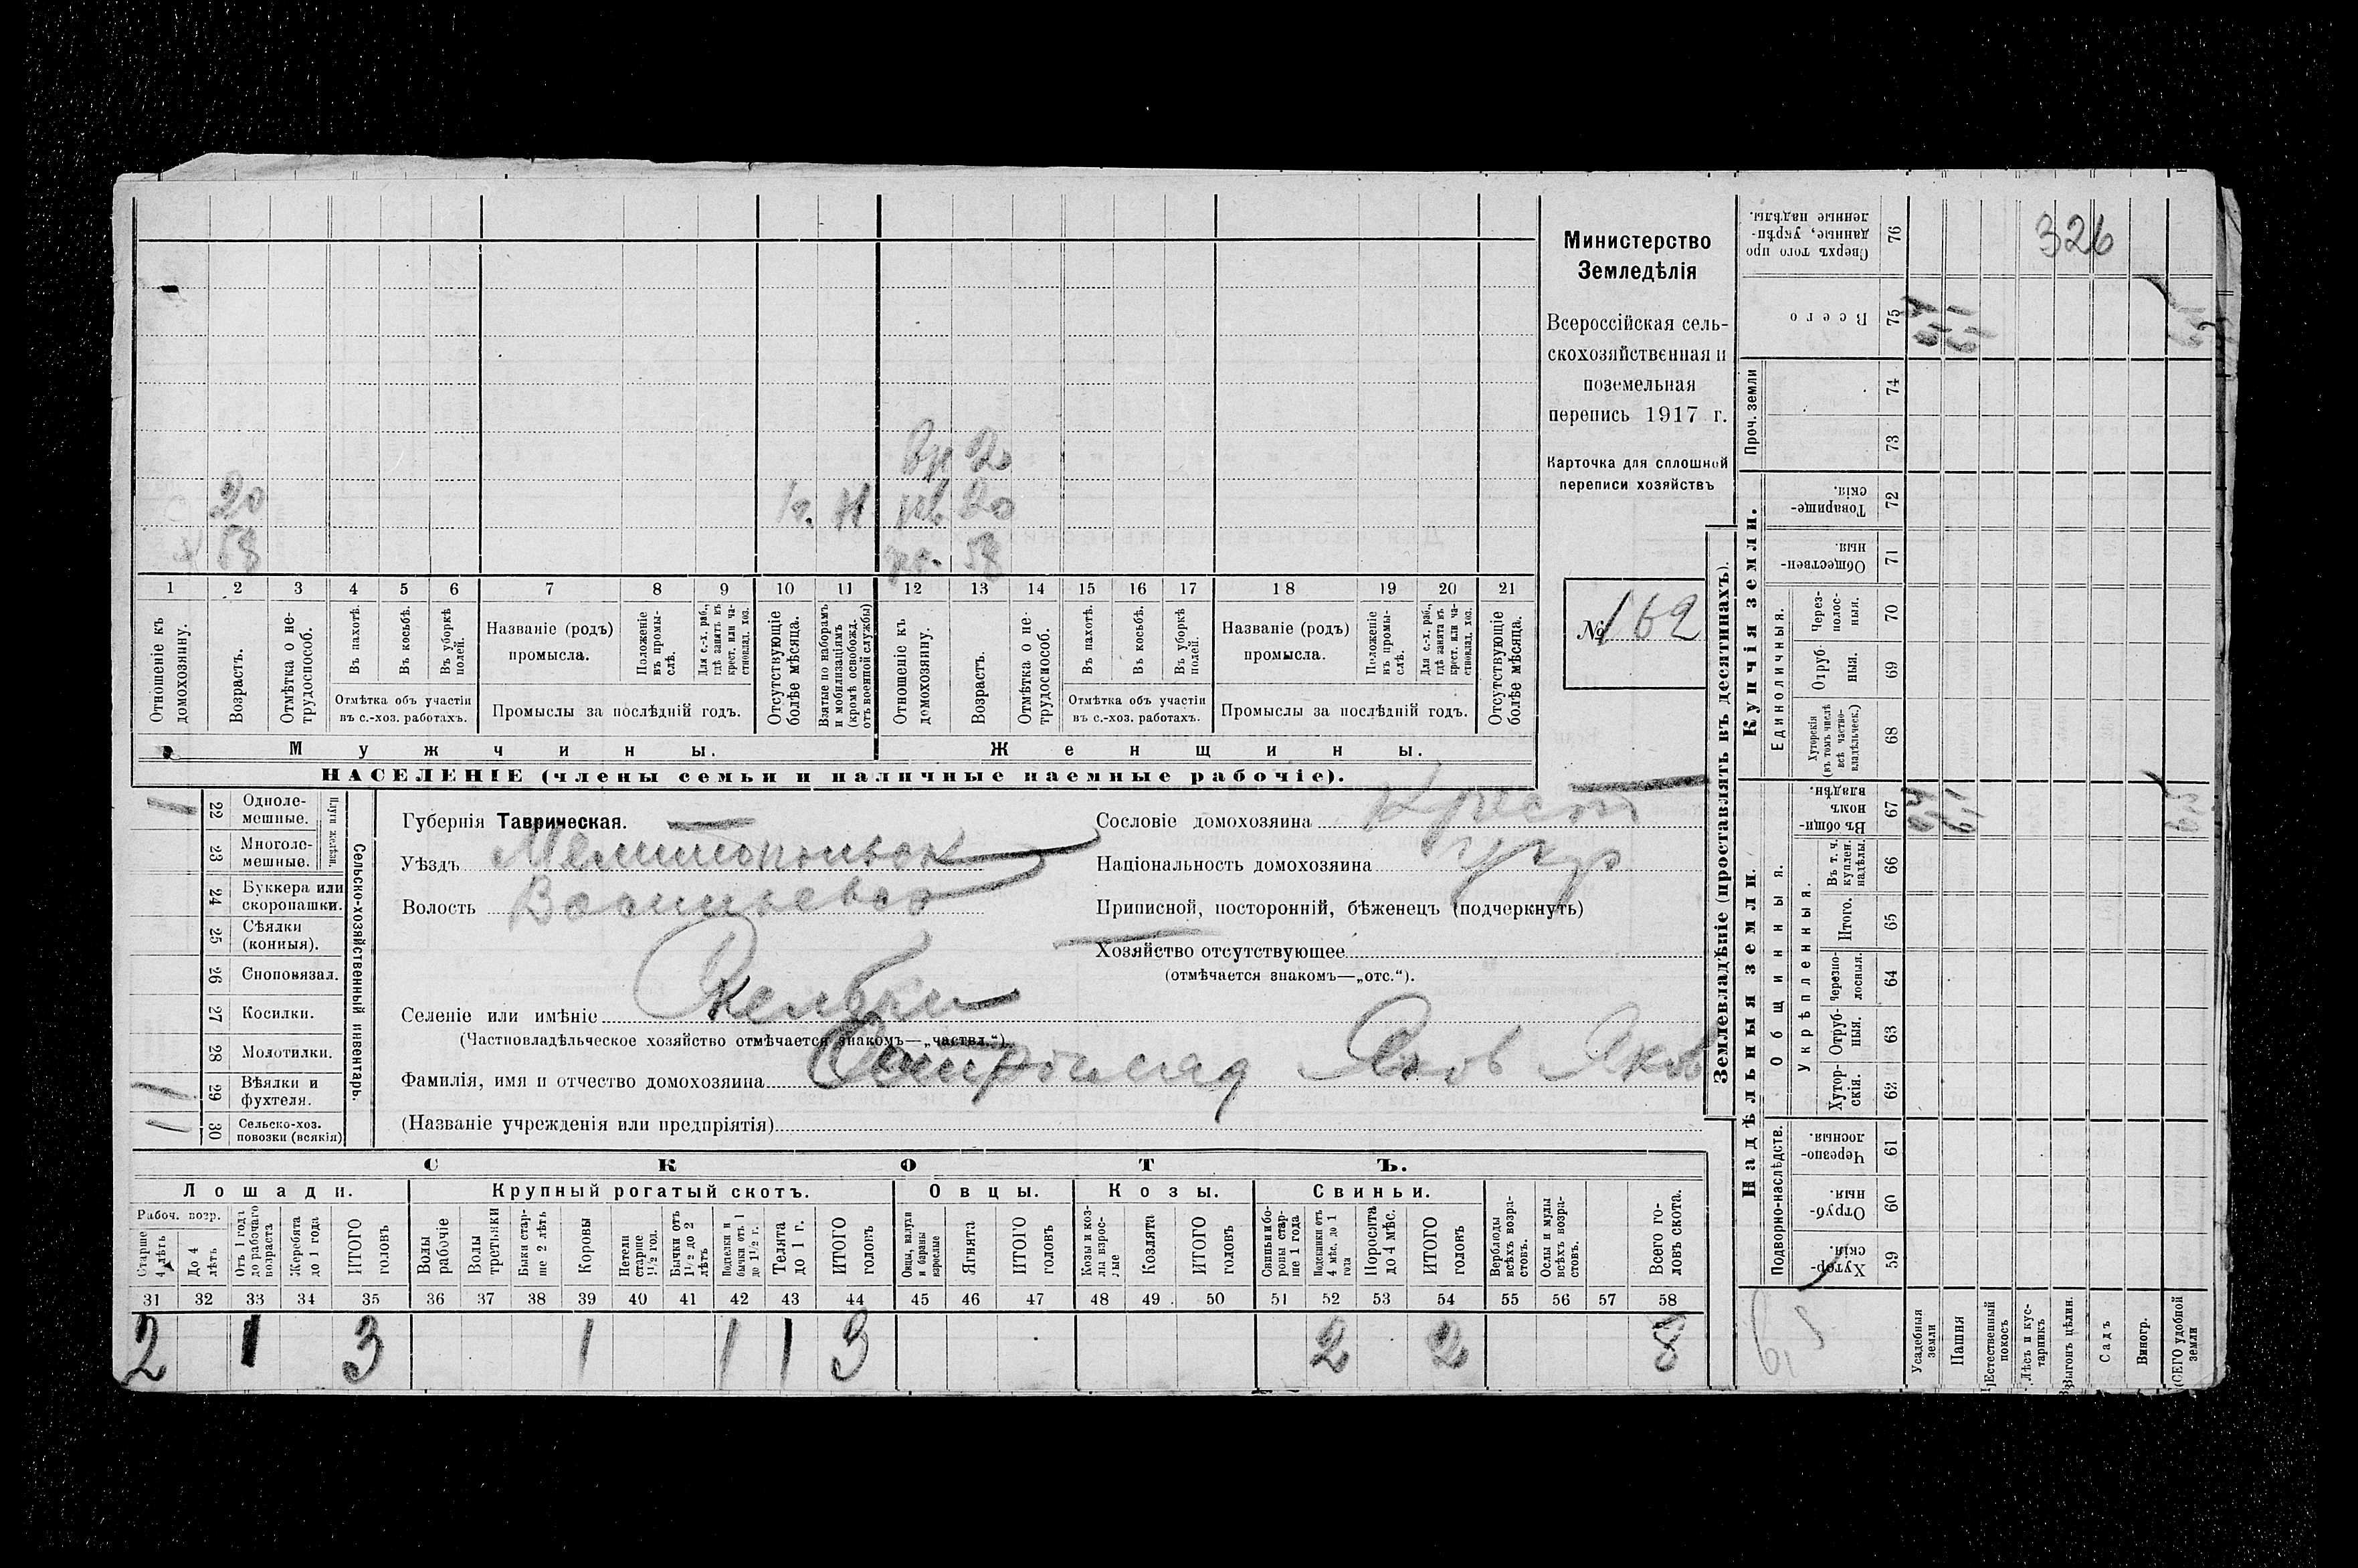 326
Министерство
Земледѣлія
Всероссійская сель-
скохозяйственная и
поземельная
перепись 1917 г.
Карточка для сплошной
переписи хозяйствъ
№ 162
20
58
20
20
58
1 2 3 4 5 6 7 8 9 10 11 12 13 14 15 16 17 18 19 20 21
Отношеніе къ домохозяину.
Возрастъ.
Отмѣтка о не-трудоспособ.
Въ пахотѣ.
Въ косьбѣ.
Въ уборкѣ полей.
Отмѣтка объ участіи
въ с.-хоз. работахъ.
Названіе (родъ)
промысла.
Положеніе въ промы-слѣ.
Для с.-х. раб., гдѣ занятъ въ крест. или ча-стновлад. хоз.
Промыслы за послѣдній годъ.
Отсутствующіе болѣе мѣсяца.
Взятые по наборамъ и мобилизаціямъ (кромѣ освобожд. отъ военной службы)
Отношеніе къ домохозяину.
Возрастъ.
Отмѣтка о не-трудоспособ.
Въ пахотѣ.
Въ косьбѣ.
Въ уборкѣ полей.
Отмѣтка объ участіи
въ с.-хоз. работахъ.
Названіе (родъ)
промысла.
Положеніе въ промы-слѣ.
Для с.-х. раб., гдѣ занята въ крест. или ча-стновлад. хоз.
Промыслы за послѣдній годъ.
Отсутствующіе болѣе мѣсяца.
Мужчины. Женщины.
НАСЕЛЕНІЕ (члены семьи и наличные наемные рабочіе).
Сельско-хозяйственный инвентарь.
1 22 Одноле-мешные.
23 Многоле-мешные.
24 Буккера или скоропашки.
25 Сѣялки (конныя).
26 Сноповязал.
27 Косилки.
28 Молотилки.
1 29 Вѣялки и фухтеля.
1 30 Сельско-хоз. повозки (всякія)
Губернія Таврическая.
Уѣздъ Мелитопольск
Волость Васильевск
Сословіе домохозяина Крест
Національность домохозяина
Приписной, посторонній, бѣженецъ (подчеркнуть)
Хозяйство отсутствующее
(отмѣчается знакомъ—„отс.“).
Селеніе или имѣніе
(Частновладѣльческое хозяйство отмѣчается знакомъ—„частвл.“)
Фамилія, имя и отчество домохозяина Яков Яков
(Названіе учрежденія или предпріятія)
СКОТЪ.
Лошади. Крупный рогатый скотъ. Овцы. Козы. Свиньи.
Рабоч. возр.
Старше 4 лѣтъ
До 4 лѣтъ
Отъ 1 года до рабочаго возраста
Жеребята до 1 года
ИТОГО головъ
Волы рабочіе
Волы третьяки
Быки стар-ше 2 лѣтъ
Коровы
Нетели старше 1½ год.
Бычки отъ 1½ до 2 лѣтъ
Подтелки и бычки отъ 1 до 1½ г.
Телята до 1 г.
ИТОГО головъ
Овцы, валухи и бараны взрослые
Ягнята
ИТОГО головъ
Козы и коз-лы взрос-лые
Козлята
ИТОГО головъ
Свиньи и бо-ровы стар-ше 1 года
Подсвинки отъ 4 мѣс. до 1 года
Поросята до 4 мѣс.
ИТОГО головъ
Верблюды всѣхъ возра-стовъ.
Ослы и мулы всѣхъ возра-стовъ.
Всего го-ловъ скота.
31 32 33 34 35 36 37 38 39 40 41 42 43 44 45 46 47 48 49 50 51 52 53 54 55 56 57 58
2 1 3 1 1 1 3 2 2 8
Землевладѣніе (проставлять въ десятинахъ).
Надѣльныя земли.
Купчія земли.
Проч. земли
Подворно-наслѣдств.
Общинныя.
Укрѣпленныя.
Единоличныя.
Хутор-скія. 59
Отруб-ныя. 60
Черезпо-лосныя. 61
Хутор-скія. 62
Отруб-ныя. 63
Черезпо-лосныя. 64
Итого. 65
Въ т. ч. куплен. надѣлы. 66
Въ общи-номъ владѣн. 67
Хуторскія (въ томъ числѣ всѣ частно-владѣльческ.) 68
Отруб-ныя. 69
Через-полос-ныя. 70
Обществен-ныя. 71
Товарище-скія. 72
73
74
Всего 75
Сверхъ того про данные, укрѣп-ленные надѣлы. 76
Усадебныя земли
Пашня
Естественный покосъ
Лѣсъ и кус-тарникъ
Выгонъ цѣлин.
Садъ
Виногр.
ВСЕГО удобной земли
6,5